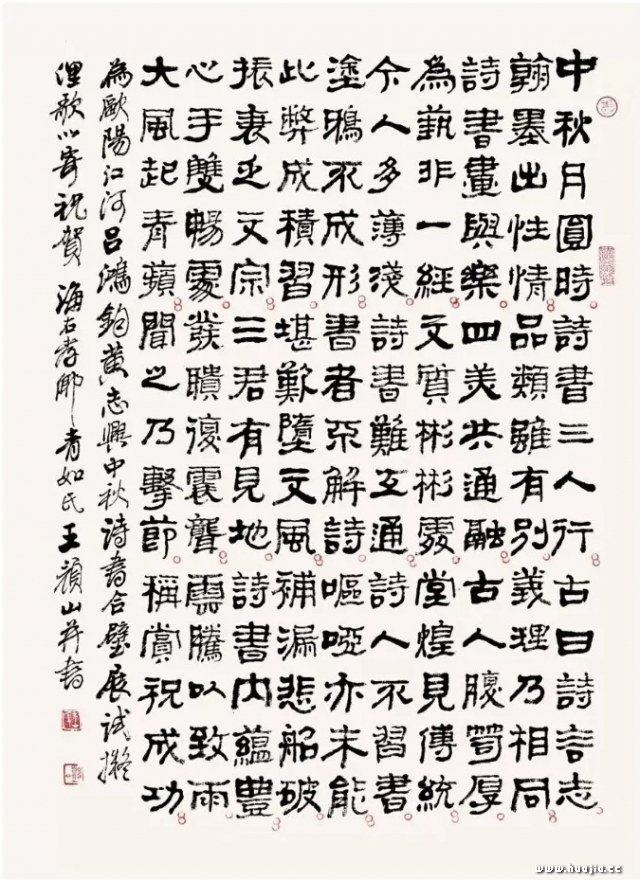 中秋月圓時詩書三人行古曰詩言志
翰墨出性情品類雖有別義理乃相同
詩書畫與樂四美共通融古人腹笥厚
為藝非一經文質彬彬處堂煌見傳統
今人多薄淺詩書難互通詩人不習書
塗鴉不成形書者不解詩嘔啞亦未能
此弊成積習堪歎墮文風補漏悲船破
振衰乏文宗三君有見地詩書內蘊豐
心手雙暢處發聵復震聾雲騰以致雨
大風起青蘋聞之乃擊節稱賞祝成功
為歐陽江河呂鴻鈞黃志興中秋詩書合璧展試擬
俚歌以寄祝賀 海右孝鄉青如氏王顏山并書
www.huajia.cc